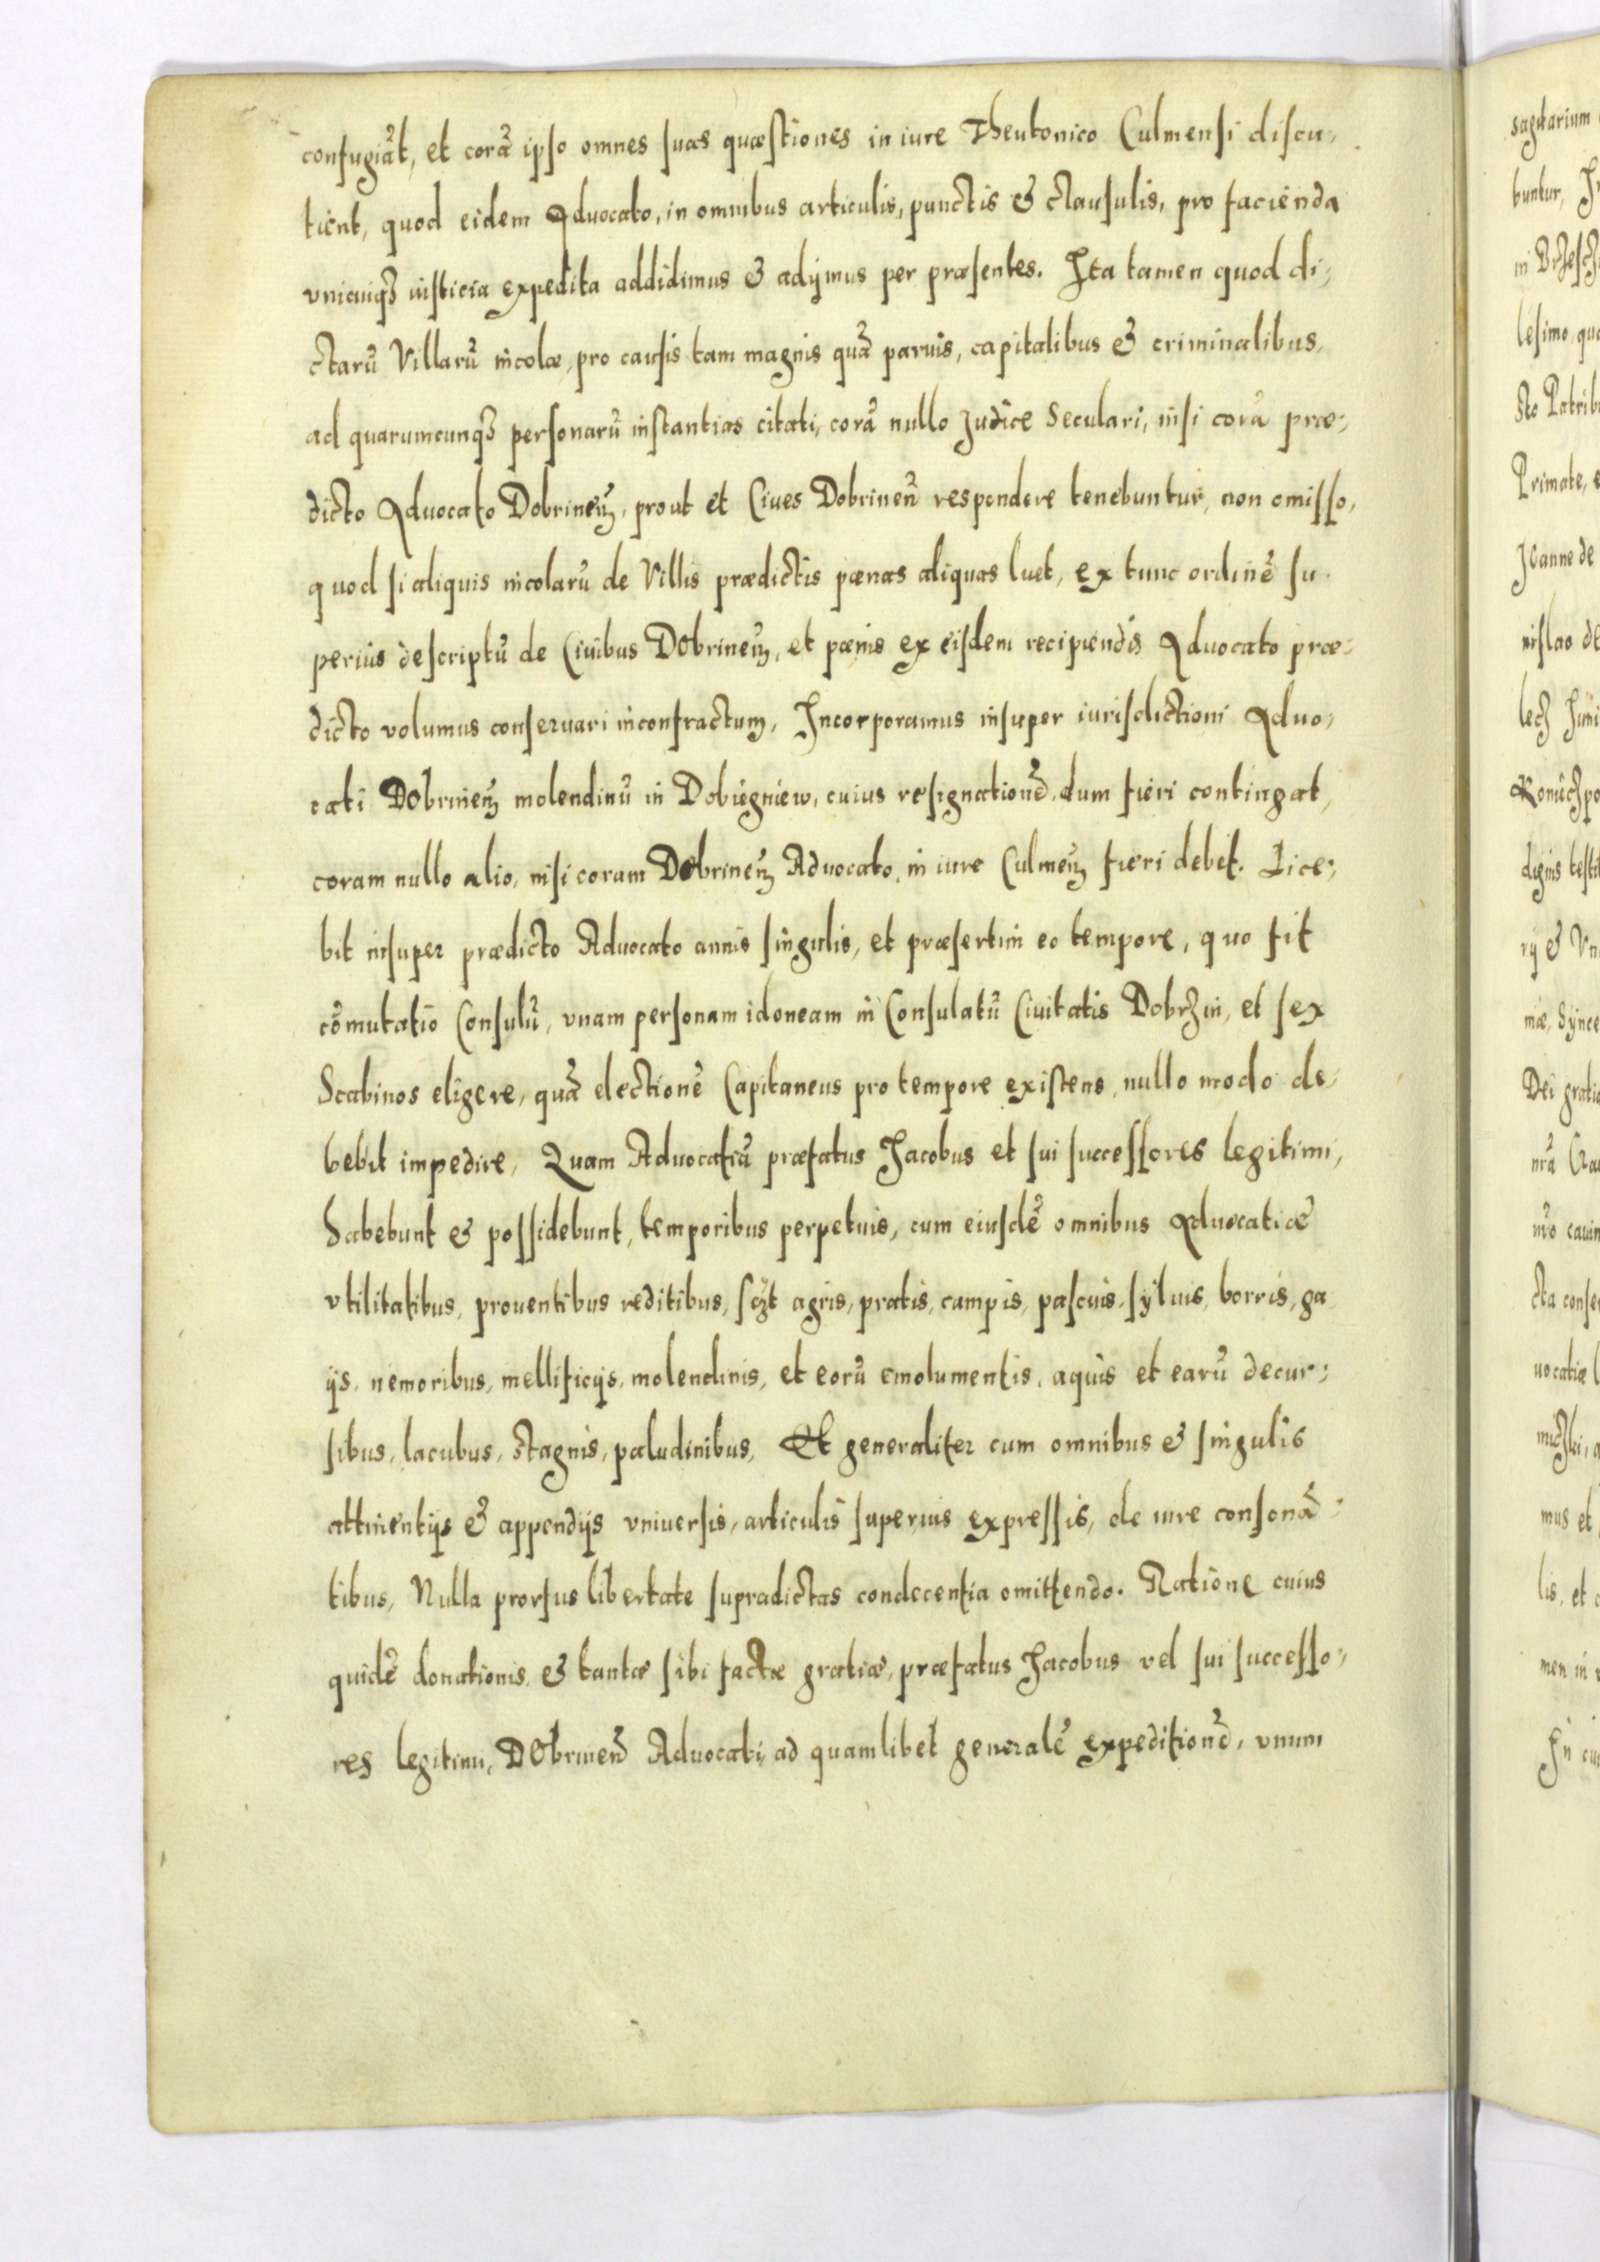 confugiāt, et corā ipso omnes suas quæstiones in iure Theutonico Culmensi discu-
tiēnt, quod eidem Aduocato, in omnibus articulis, punctis & clausulis, pro facienda
vnicuiqȝ iusticia expedita addidimus & adijmus per præsentes. Ita tamen quod di-
ctarū Villarū incolæ, pro causis tam magnis quā paruis, capitalibus & criminalibus,
ad quarumcunqȝ personarū instantias citati, corā nullo Judice Seculari, nisi corā præ-
dicto Aduocato Dobrineñ, prout et Ciues Dobrineñ respondere tenebuntur, non omisso,
quod si aliquis incolarū de Villis prædictis pœnas aliquas luet, ex tunc ordinē su-
perius descriptū de Ciuibus Dobrineñ, et pœnis ex eisdem recipiendis Aduocato præ-
dicto volumus conseruari inconfractum, Incorporamus insuper iurisdictioni Aduo-
cati Dobrineñ molendinū in Dobiegniew, cuius resignationē dum fieri contingat,
coram nullo alio, nisi coram Dobrineñ Aduocato in iure Culmeñ fieri debet. Lice-
bit insuper prædicto Aduocato annis singulis, et præsertim eo tempore, quo fit
cōmutatio Consulū, vnam personam idoneam in Consulatū Ciuitatis Dobrzin, et sex
Scabinos eligere, quā electionē Capitaneus pro tempore existens, nullo modo de-
bebit impedire, Quam Aduocatiā præfatus Jacobus et sui successores legitimi,
habebunt & possidebunt, temporibus perpetuis, cum eiusdē omnibus Aduocatiæ
vtilitatibus, prouentibus reditibus, sczt agris, pratis, campis, pascuis, syluis, borris, ga
ijs, nemoribus, mellificijs, molendinis, et eorū emolumentis, aquis et earū decur-
sibus, lacubus, stagnis, paludinibus, Et generaliter cum omnibus & singulis
attinentijs & appendijs vniuersis, articulis superius expressis, de iure consonā-
tibus, Nulla prorsus libertate supradictas condecentia omittendo. Ratione cuius
quidē donationis & tantæ sibi factæ gratiæ, præfatus Jacobus vel sui successo-
res legitimi, Dobrineñ Aduocati, ad quamlibet generalē expeditionē, vnum